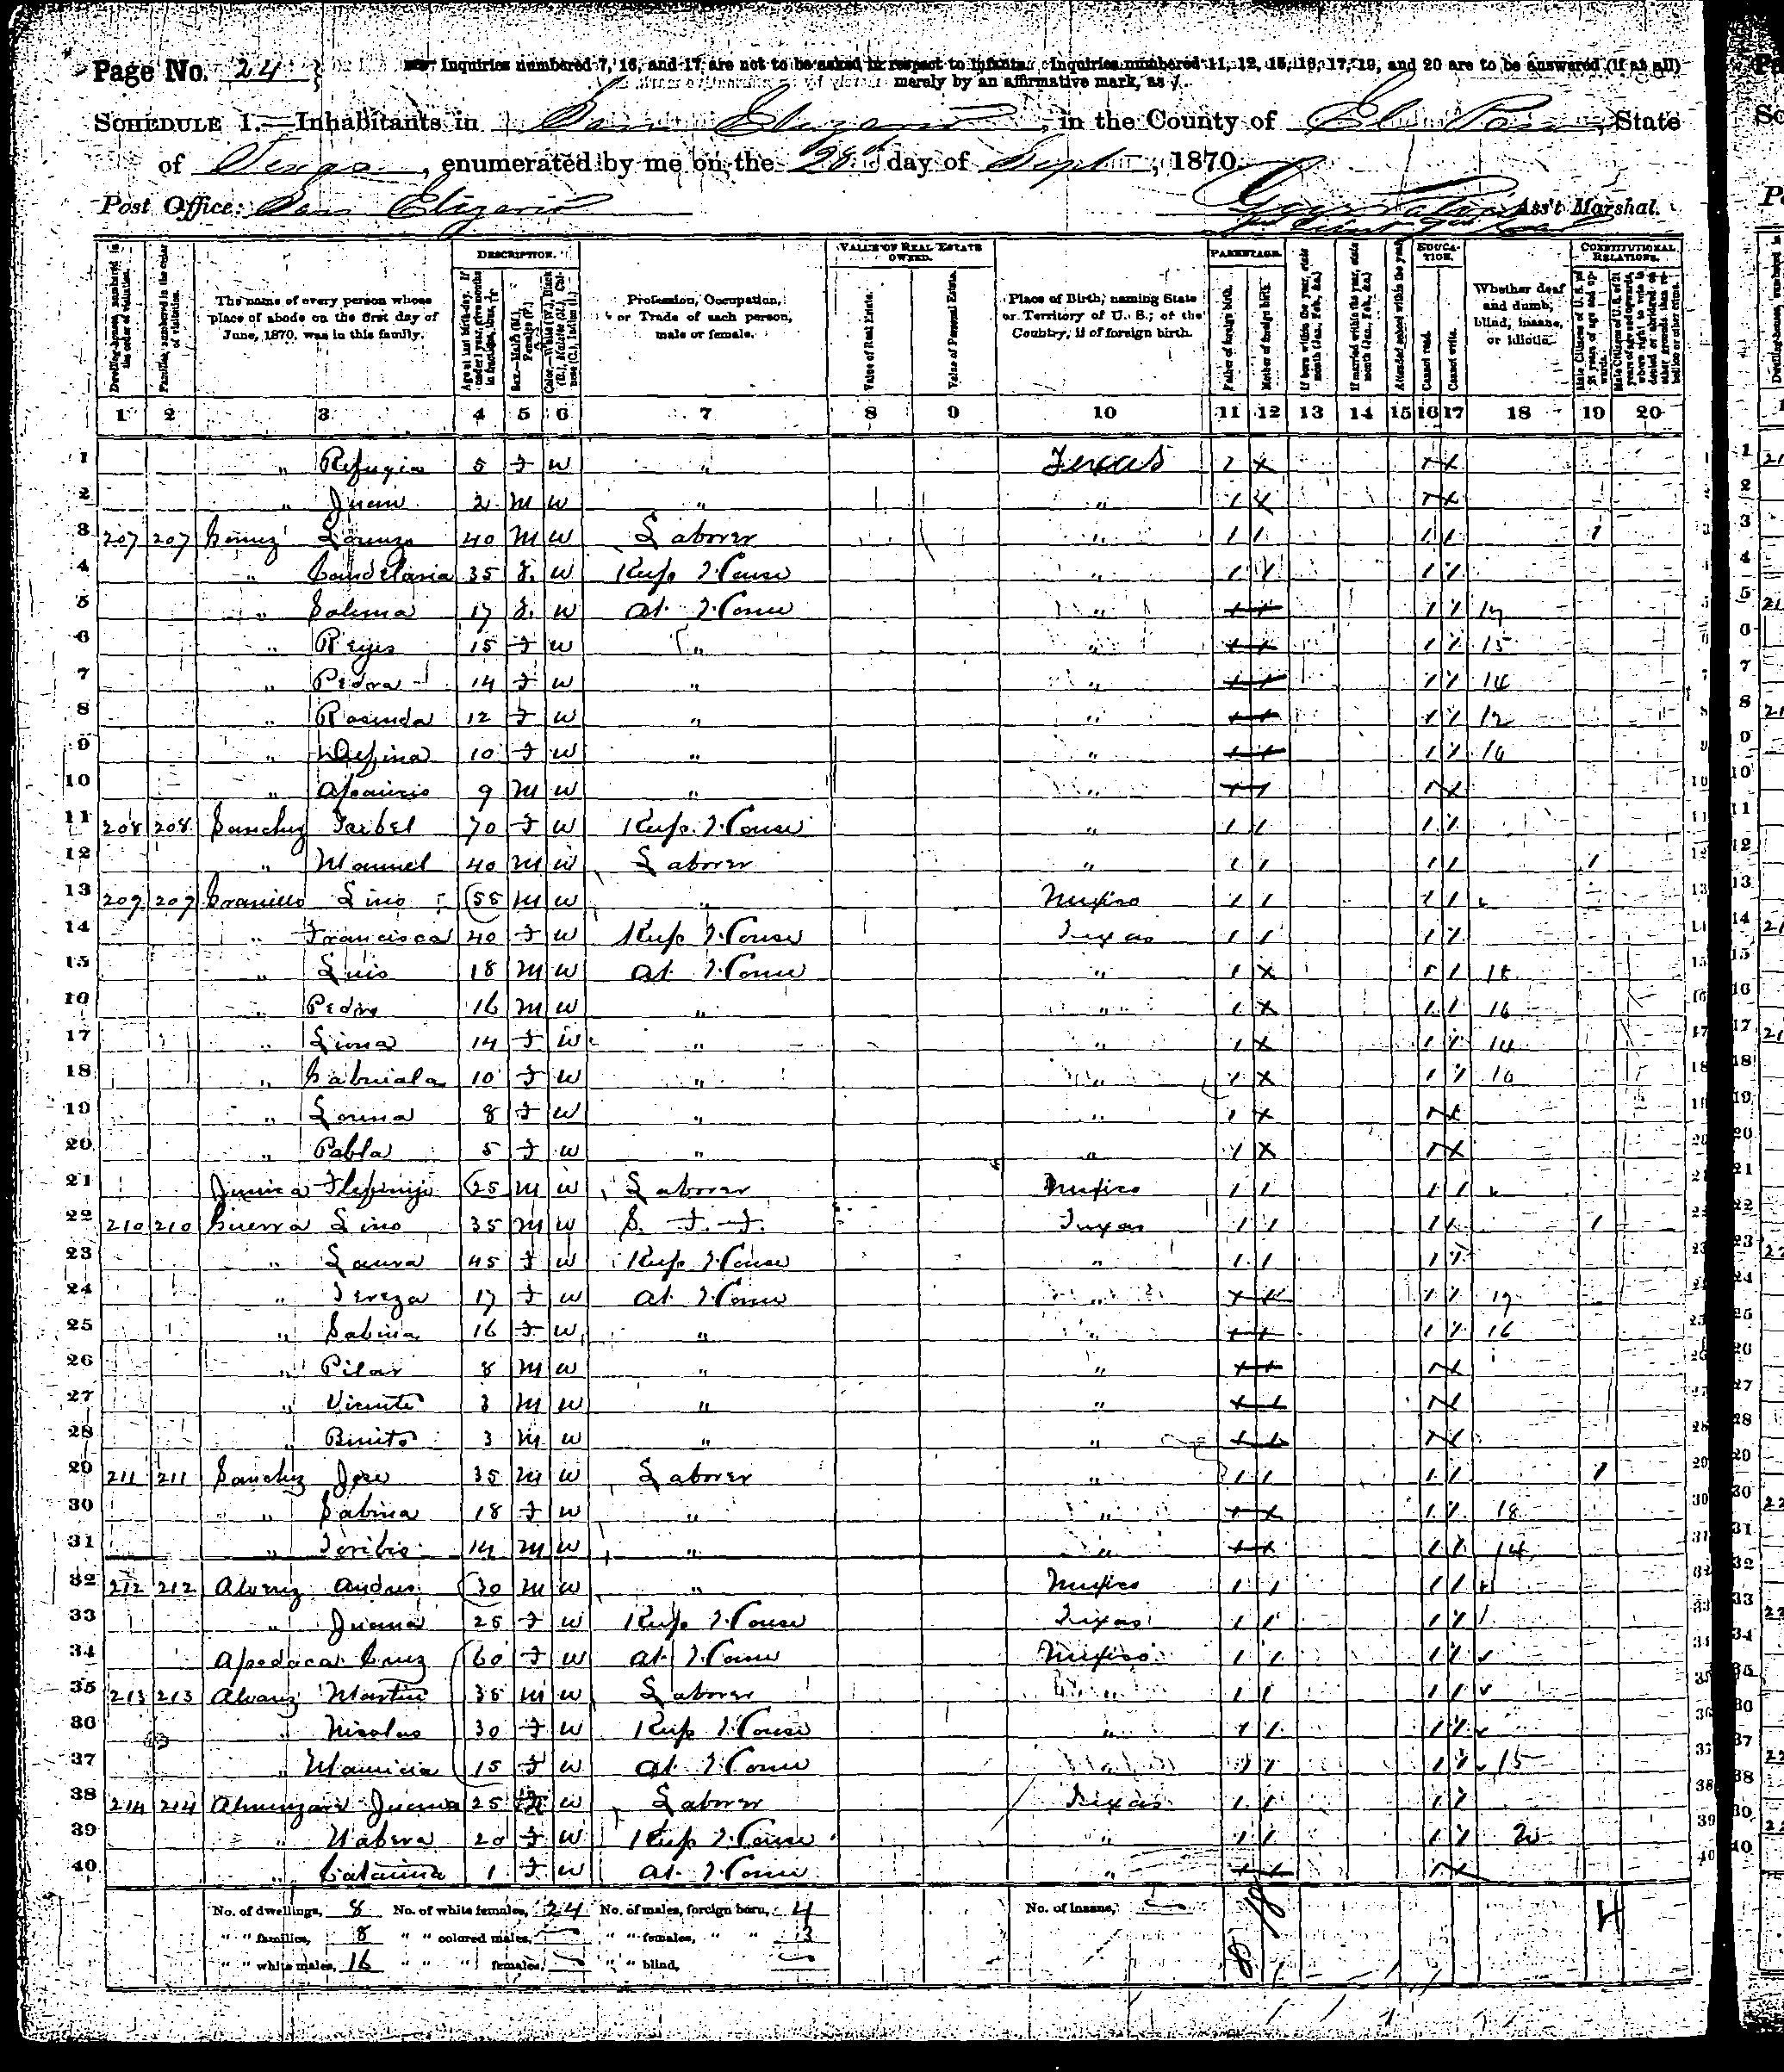 Page No. 24
Inquiries numbered 7, 16, and 17 are not to be asked in respect to infants. Inquiries numbered 11, 12, 15, 16, 17, 19, and 20 are to be answered (if at all)
merely by an affirmative mark, as /.
SCHEDULE 1.—Inhabitants in San Elizario, in the County of El Paso, State
of Texas, enumerated by me on the 28th day of Sept, 1870.
Post Office: San Elizario
Ass't Marshal.
DESCRIPTION. VALUE OF REAL ESTATE OWNED. PARENTAGE. EDUCATION. CONSTITUTIONAL RELATIONS.
Dwelling-houses, numbered in the order of visitation.
Families, numbered in the order of visitation.
The name of every person whose place of abode on the first day of June, 1870, was in this family.
Age at last birth-day. If under 1 year, give months in fractions, thus,
Sex.—Males (M.), Females (F.)
Color.—White (W.), Black (B.), Mulatto (M.), Chinese (C.), Indian (I.)
Profession, Occupation, or Trade of each person, male or female.
Value of Real Estate.
Value of Personal Estate.
Place of Birth, naming State or Territory of U. S.; or the Country, if of foreign birth.
Father of foreign birth.
Mother of foreign birth.
If born within the year, state month (Jan., Feb., &c.)
If married within the year, state month (Jan., Feb., &c.)
Attended school within the year.
Cannot read.
Cannot write.
Whether deaf and dumb, blind, insane, or idiotic.
Male Citizens of U. S. of 21 years of age and upwards.
Male Citizens of U. S. of 21 years of age and upwards, where right to vote is denied or abridged on other grounds than rebellion or other crime.
1 2 3 4 5 6 7 8 9 10 11 12 13 14 15 16 17 18 19 20
1 " Refugia 5 F W " Texas
2 " Juan 2 M W " "
3 207 207 Gomez Lorenzo 40 M W Laborer " / / / / /
4 " Candelaria 35 F. W Keeps House " / / / /
5 " Salema 17 F. W At Home " / / 17
6 " Reyes 15 F W " " / / 15
7 " Pedra 14 F W " " / / 14
8 " Rasinda 12 F W " " / / 12
9 " Delfina 10 F W " " / / 10
10 " 9 M W " "
11 208 208 Sanchez Isabel 70 F W Keeps House " / / / /
12 " Manuel 40 M W Laborer " / / / / /
13 209 209 Carrillo Lino 55 M W " Mexico / / / /
14 " Francisca 40 F W Keeps House Texas / / / /
15 " Luis 18 M W At Home " / x / / 18
16 " Pedro 16 M W " " / x / / 16
17 " Lina 14 F W " " / x / / 14
18 " Gabriala 10 F W " " / x / / 10
19 " 8 F W " " / x
20 " Pabla 5 F W " " / x
21 25 M W Laborer Mexico / / / /
22 210 210 Guerra Lino 35 M W S. F. F. Texas / / / / /
23 " Laura 45 F W Keeps House " / / / /
24 " Tereza 17 F W At Home " / / 17
25 " Sabina 16 F W " " / / 16
26 " Pilar 8 M W " "
27 " Vicente 3 M W " "
28 " Benito 3 M W " "
29 211 211 Sanchez Jose 35 M W Laborer " / / / / /
30 " Sabina 18 F W " " / / 18
31 " Toribio 14 M W " " / / 14
32 212 212 Alverez Andres 30 M W " Mexico / / / /
33 " Juana 25 F W Keeps House Texas / / / /
34 Apodaca Cruz 60 F W At Home Mexico / / / /
35 213 213 Alvarez Martin 35 M W Laborer " / / / /
36 " Nicolas 30 F W Keeps House " / / / /
37 " Mauricia 15 F W At Home " / / / / 15
38 214 214 25 W Laborer Texas / / / /
39 " 20 F W Keeps House " / / / / 20
40 " Catarina 1 F W At Home "
No. of dwellings, 8 No. of white females, 24 No. of males, foreign born, 4 No. of insane,
" " families, 8 " " colored males, " " females, " " 3
" " white males, 16 " " " females, " " blind,
8 18 4